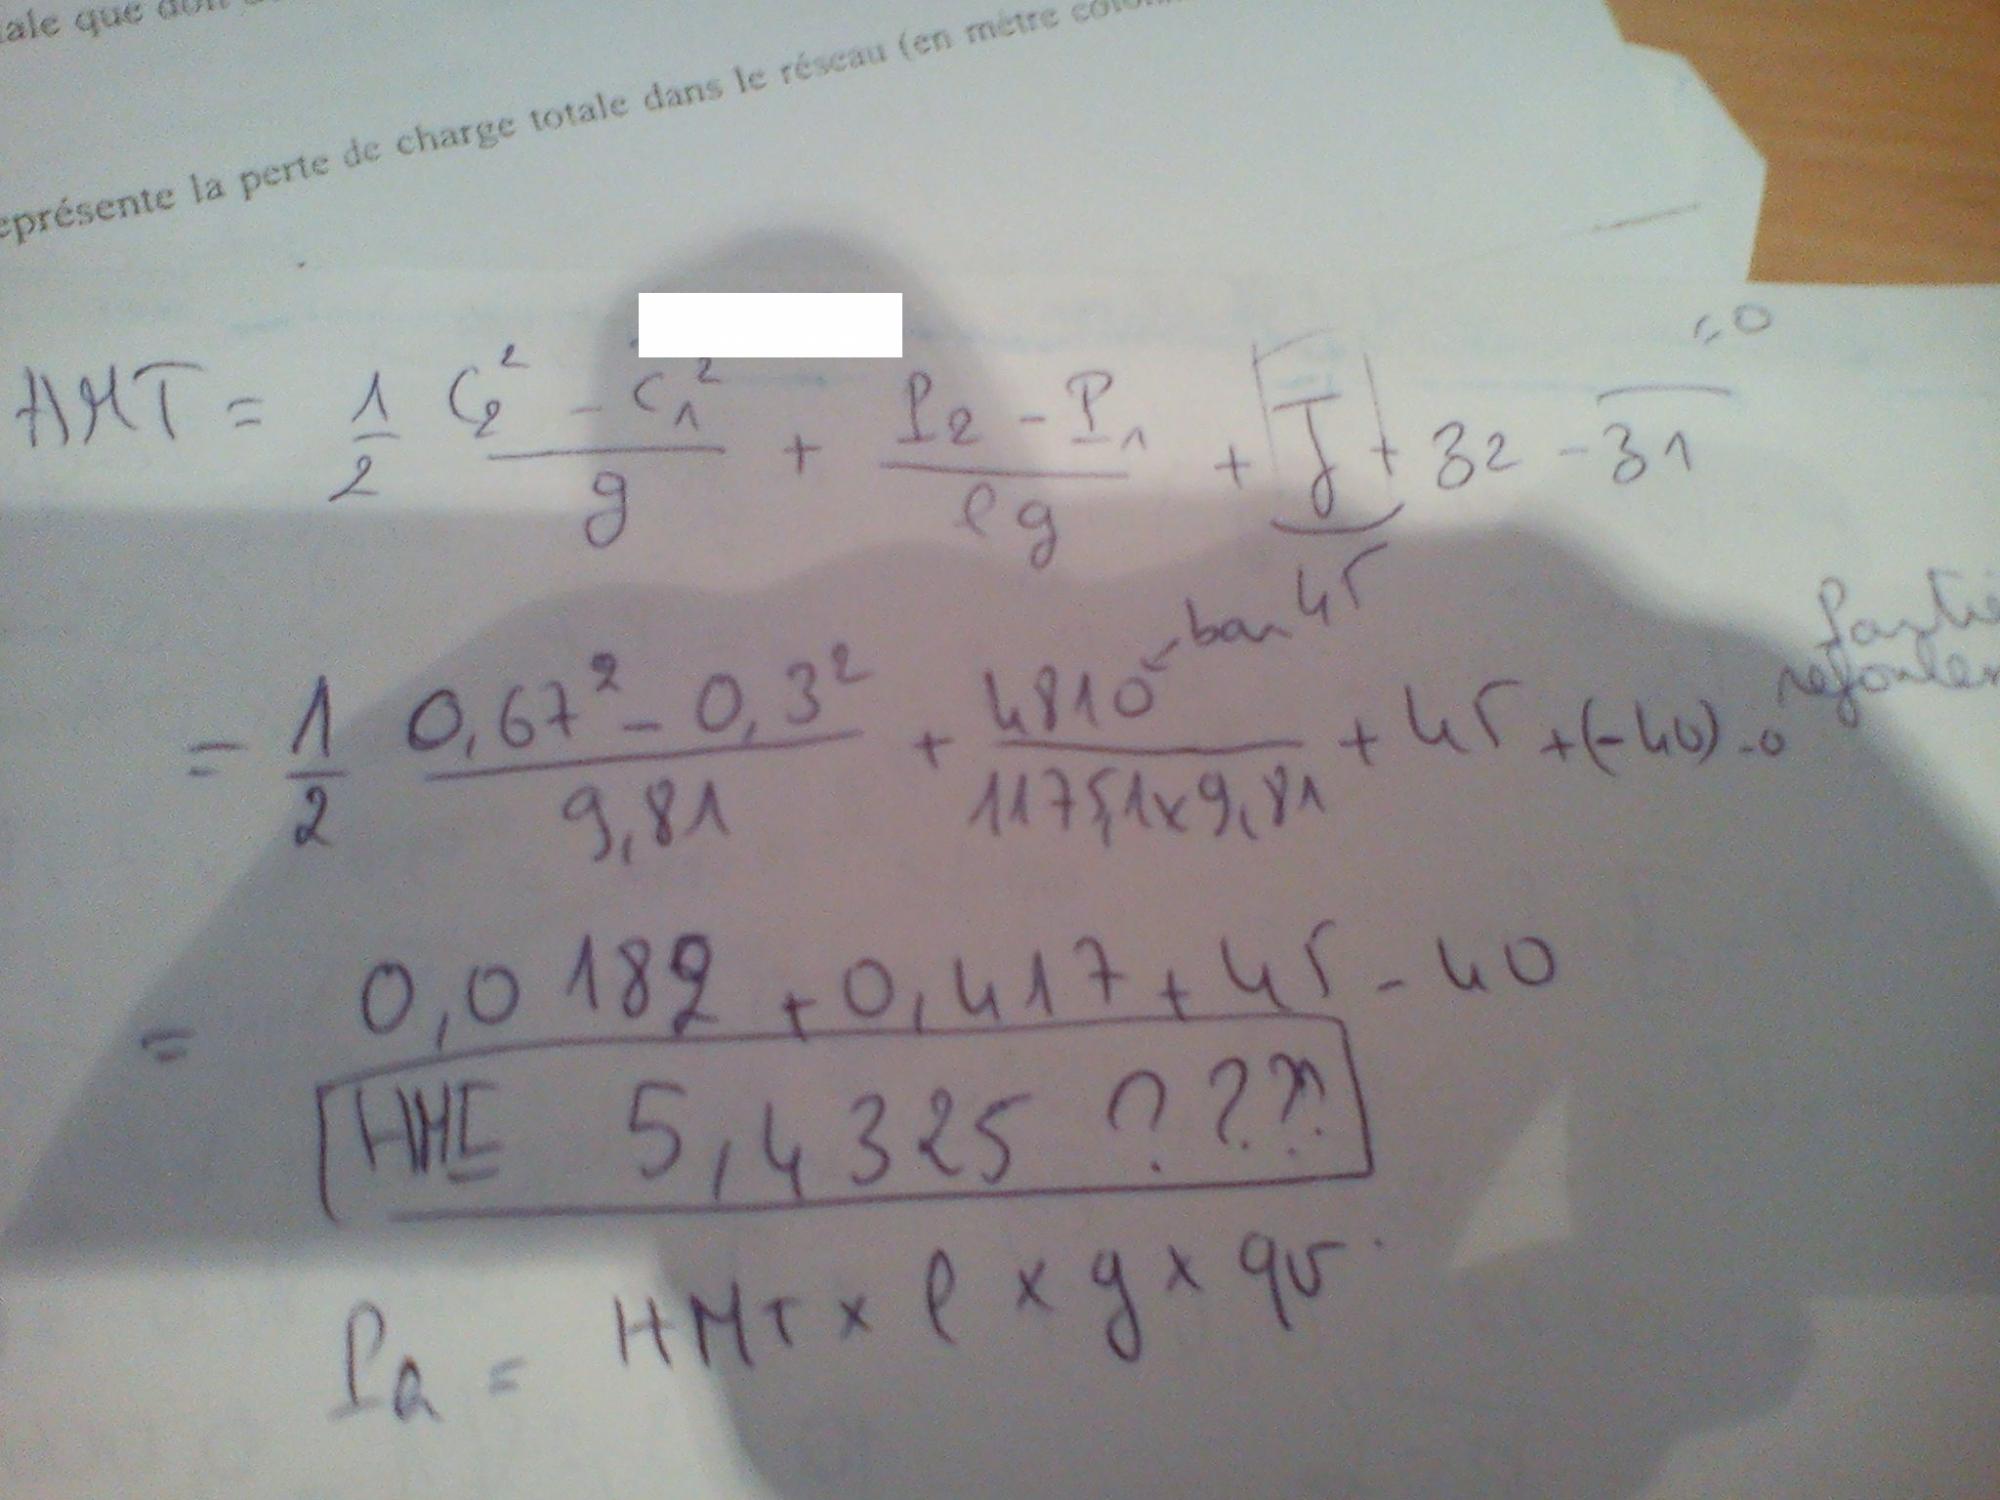 que
représente la perte de charge totale dans le réseau (en mètre
= 0
HMT = 1/2 (C₂² - C₁²)/g + (P₂ - P₁)/(ρg) + J + z₂ - z₁
45
bar
= 1/2 (0,67² - 0,3²)/9,81 + 4810/(1175,1x9,81) + 45 + (-40) - 0
= 0,0182 + 0,417 + 45 - 40
HMT 5,4325 ???
Pa = HMT x ρ x g x qv.